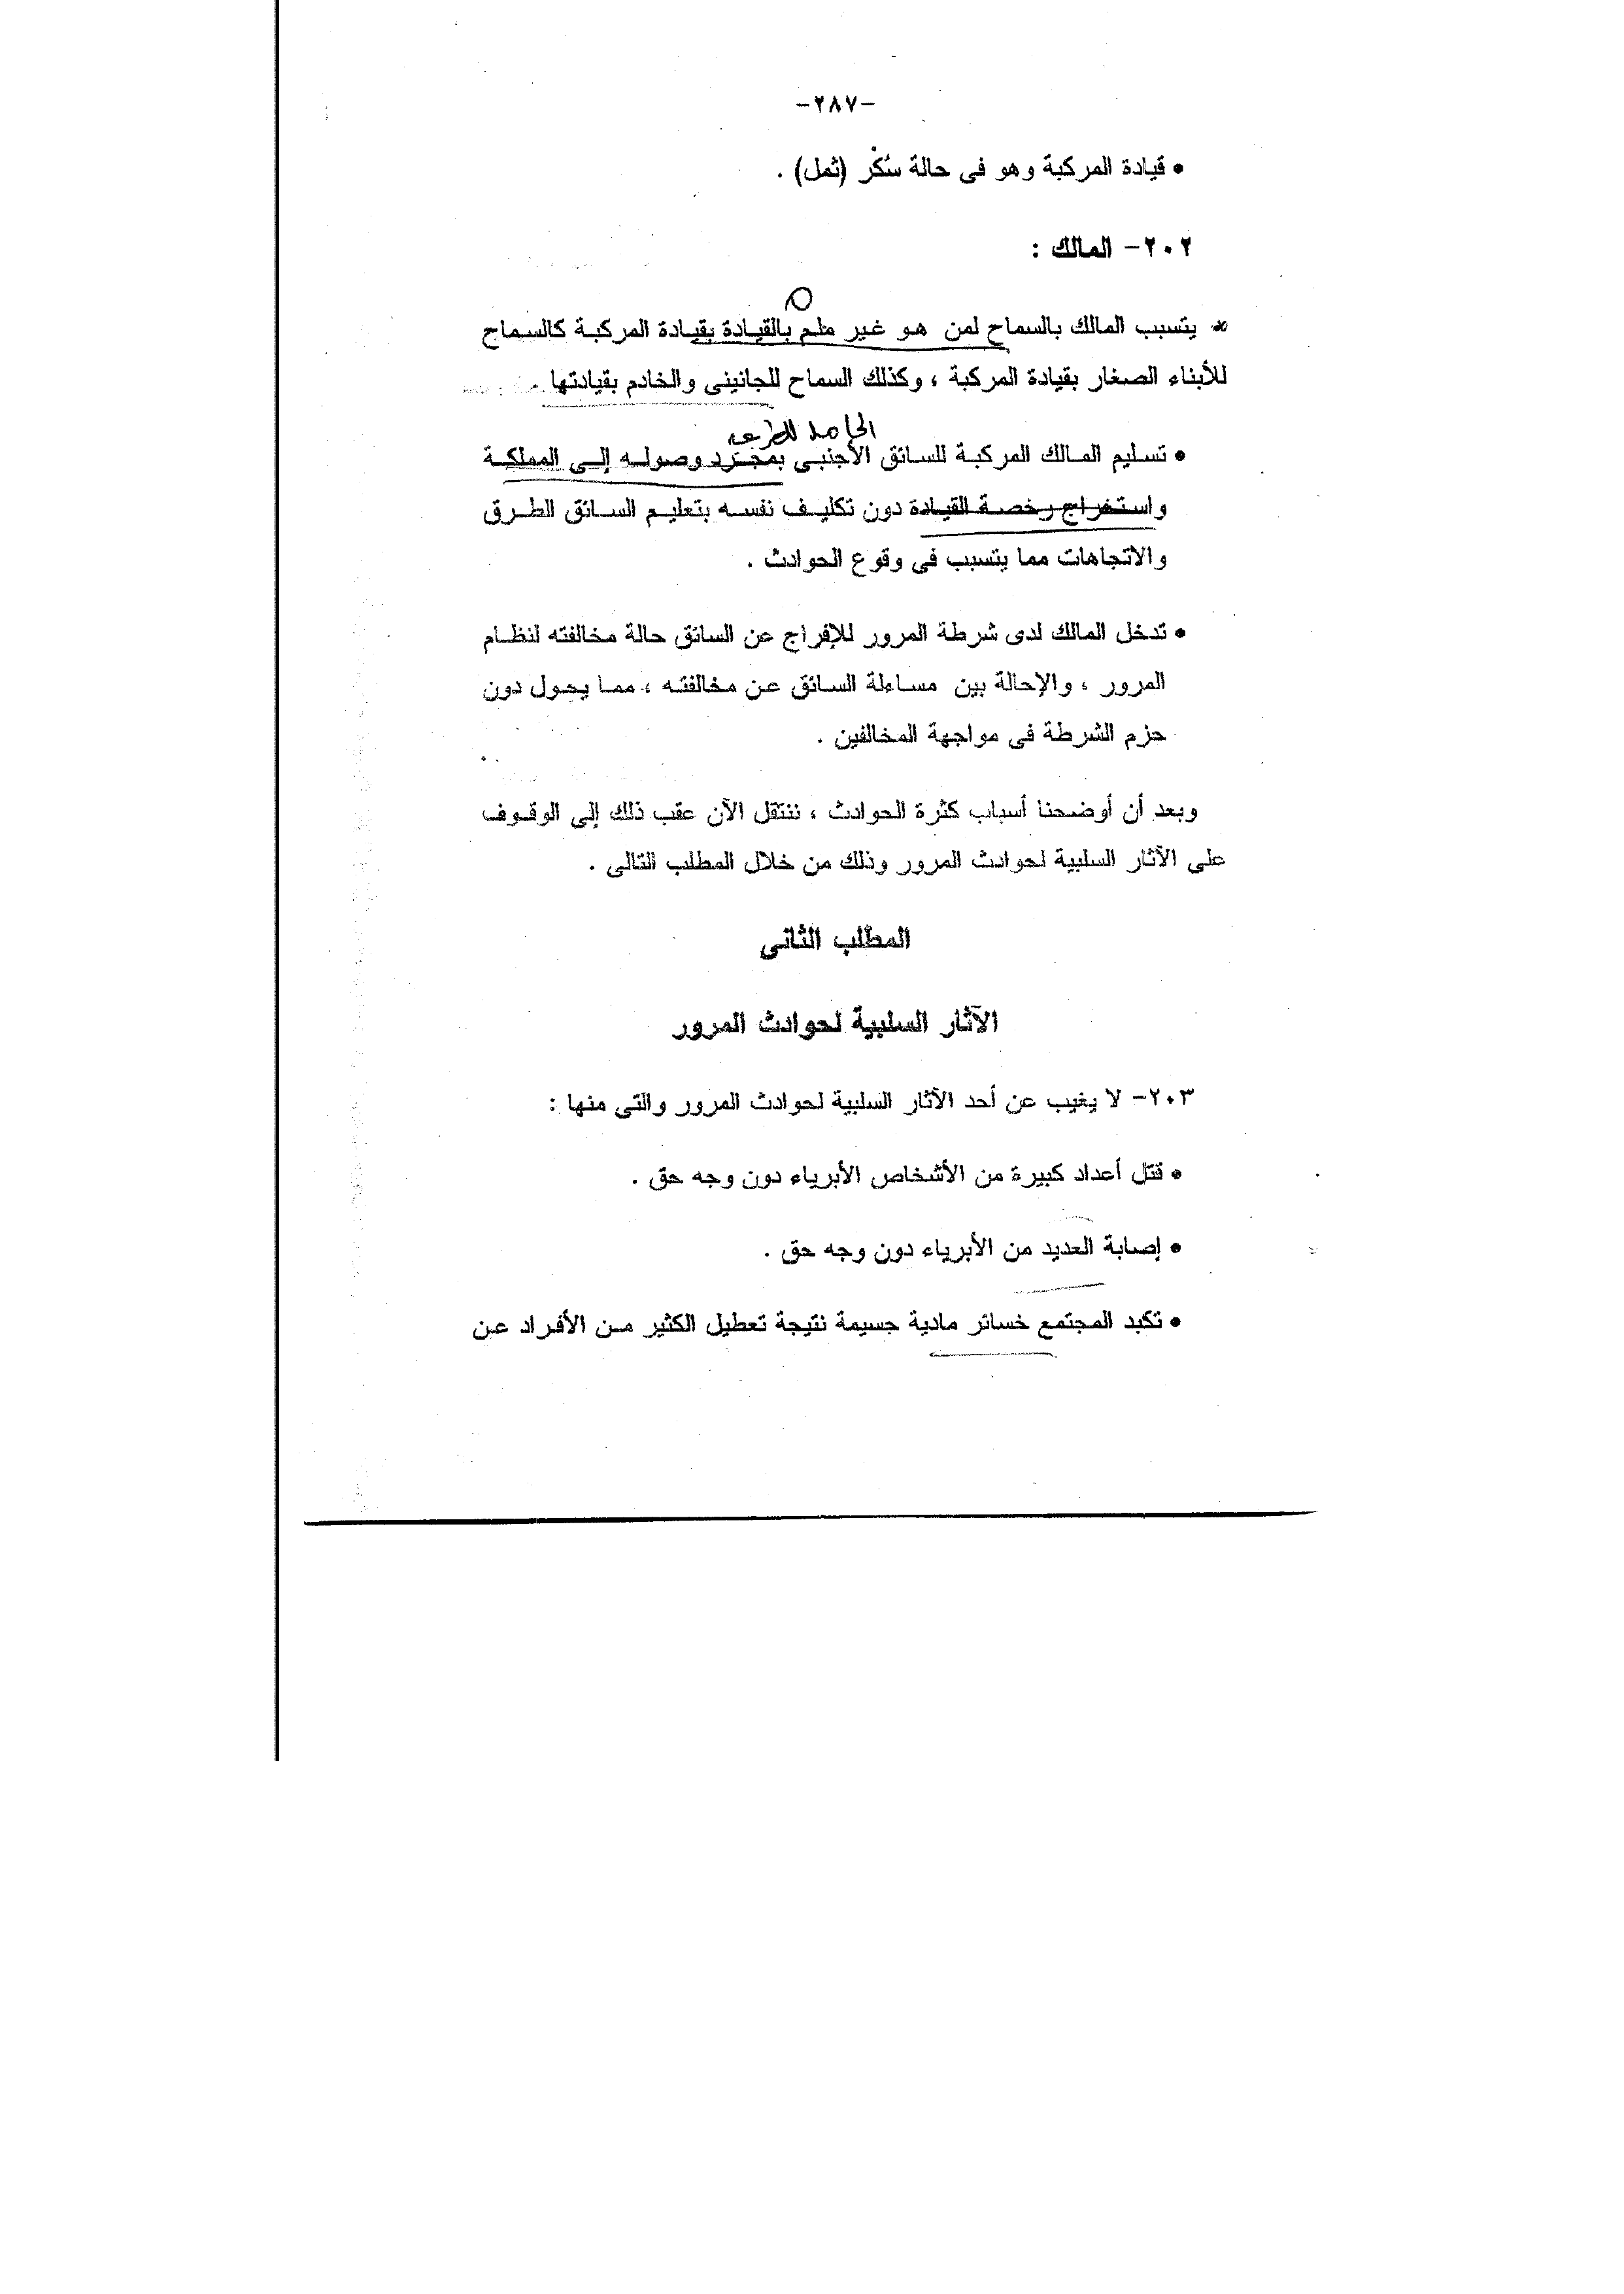 -٢٨٧-
• قيادة المركبة وهو فى حالة سُكْر (ثمل) .
٢٠٢- المالك :
* يتسبب المالك بالسماح لمن هو غير ملم بالقيادة بقيادة المركبة كالسماح
للأبناء الصغار بقيادة المركبة ، وكذلك السماح للجانينى والخادم بقيادتها
• تسليم المالك المركبة للسائق الأجنبى بمجرد وصوله إلى المملكة
واستخراج رخصة القيادة دون تكليف نفسه بتعليم السائق الطرق
والاتجاهات مما يتسبب فى وقوع الحوادث .
• تدخل المالك لدى شرطة المرور للإفراج عن السائق حالة مخالفته لنظام
المرور ، والإحالة بين مساءلة السائق عن مخالفته ، مما يحول دون
حزم الشرطة فى مواجهة المخالفين .
وبعد أن أوضحنا أسباب كثرة الحوادث ، ننتقل الآن عقب ذلك إلى الوقوف
على الآثار السلبية لحوادث المرور وذلك من خلال المطلب التالى .
المطلب الثانى
الآثار السلبية لحوادث المرور
٢٠٣- لا يغيب عن أحد الآثار السلبية لحوادث المرور والتى منها :
• قتل أعداد كبيرة من الأشخاص الأبرياء دون وجه حق .
• إصابة العديد من الأبرياء دون وجه حق .
• تكبد المجتمع خسائر مادية جسيمة نتيجة تعطيل الكثير من الأفراد عن